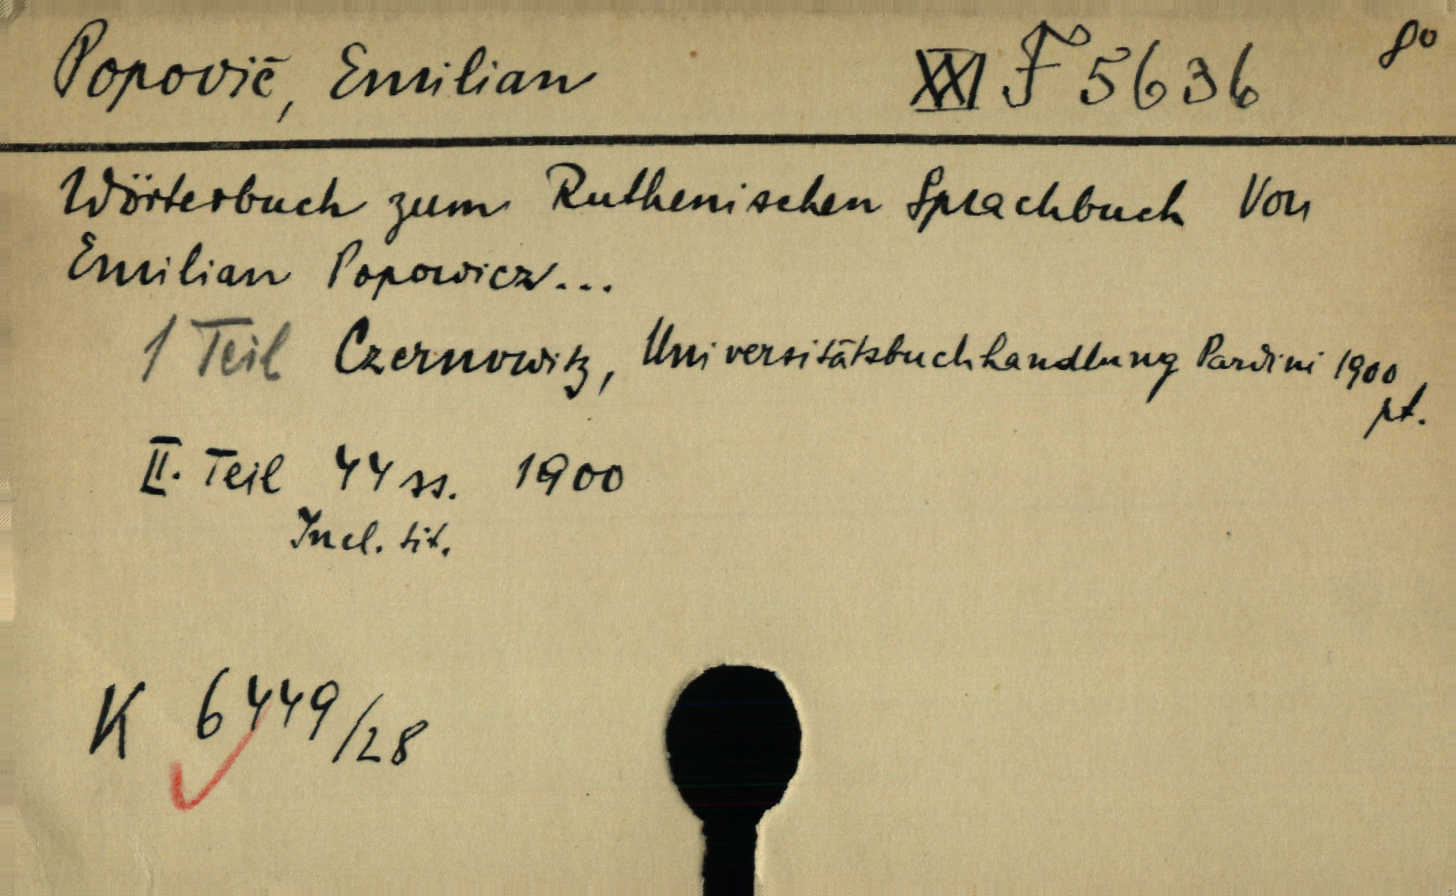 Popovič, Emilian XXI F 5636 8°
Wörterbuch zum Ruthenischen Sprachbuch Von
Emilian Popowicz...
1 Teil Czernowitz, Universitätsbuchhandlung Pardini 1900,
pt.
II. Teil 44 ss. 1900
Incl. tit.
K 6449/28